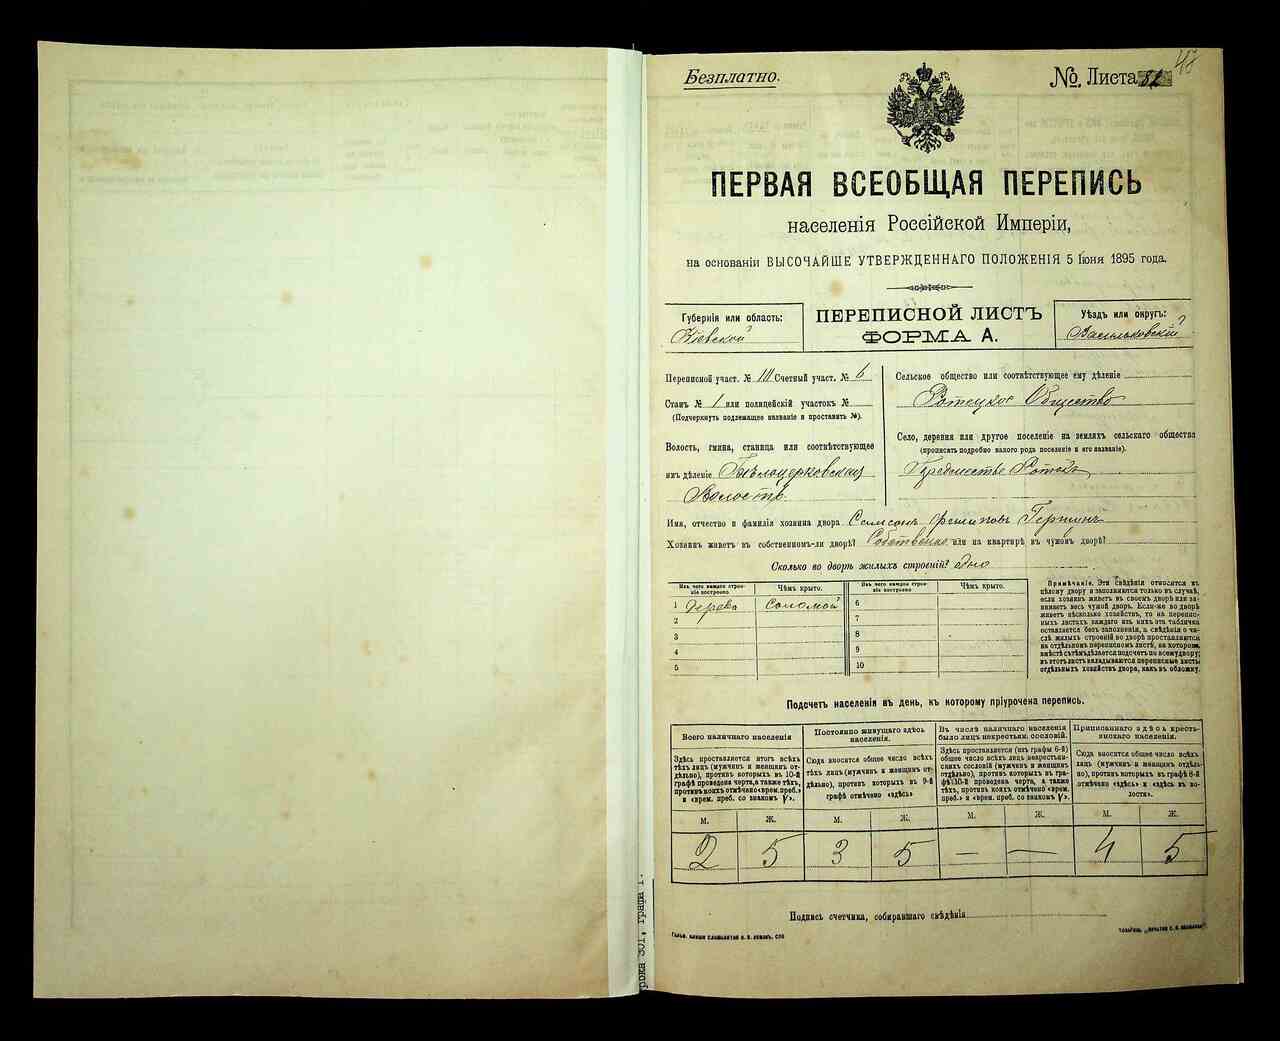 47
Безплатно.
№ Листа 82
ПЕРВАЯ ВСЕОБЩАЯ ПЕРЕПИСЬ
населенія Россійской Имперіи,
на основаніи ВЫСОЧАЙШЕ УТВЕРЖДЕННАГО ПОЛОЖЕНІЯ 5 Іюня 1895 года.
Губернія или область:
Кіевской
ПЕРЕПИСНОЙ ЛИСТЪ
ФОРМА А.
Уѣздъ или округъ:
Васильковскій
Переписной участ. № III Счетный участ. № 6
Станъ № 1 или полицейскій участокъ №
(Подчеркнуть подлежащее названіе и проставить №).
Волость, гмина, станица или соотвѣтствующее
имъ дѣленіе Бѣлоцерковская
Волость
Сельское общество или соотвѣтствующее ему дѣленіе
Ротецкое Общество
Село, деревня или другое поселеніе на земляхъ сельскаго общества
(прописать подробно какого рода поселеніе и его названіе).
Предмѣстье Ротокъ
Имя, отчество и фамилія хозяина двора Самсонъ
Хозяинъ живетъ въ собственномъ-ли дворѣ? или на квартирѣ въ чужомъ дворѣ?
Сколько во дворѣ жилыхъ строеній? одно
Изъ чего каждое строеніе построено
Чѣмъ крыто.
Изъ чего каждое строеніе построено
Чѣмъ крыто.
1 Дерева Соломой
2
3
4
5
6
7
8
9
10
Примѣчаніе. Эти свѣдѣнія относятся къ
цѣлому двору и заполняются только въ случаѣ,
если хозяинъ живетъ въ своемъ дворѣ или занимаетъ
весь чужой дворъ. Если-же во дворѣ
живетъ нѣсколько хозяйствъ, то на переписныхъ
листахъ каждаго изъ нихъ эта табличка
оставляется безъ заполненія, а свѣдѣнія о числѣ
жилыхъ строеній во дворѣ проставляются
на отдѣльномъ переписномъ листѣ, на которомъ
вмѣстѣ съ тѣмъ дѣлается подсчетъ по всему двору;
въ этотъ листъ вкладываются переписные листы
отдѣльныхъ хозяйствъ двора, какъ въ обложку.
Подсчетъ населенія въ день, къ которому пріурочена перепись.
Всего наличнаго населенія
Здѣсь проставляется итогъ всѣхъ
тѣхъ лицъ (мужчинъ и женщинъ отдѣльно),
противъ которыхъ въ 10-й
графѣ проведена черта, а также тѣхъ,
противъ коихъ отмѣчено «врем. преб.»
и «врем. преб. со знакомъ V».
Постоянно живущаго здѣсь
населенія.
Сюда вносится общее число всѣхъ
тѣхъ лицъ (мужчинъ и женщинъ отдѣльно),
противъ которыхъ въ 9-й
графѣ отмѣчено «здѣсь»
Въ числѣ наличнаго населенія
было лицъ некрестьян. сословій.
Здѣсь проставляется (изъ графы 6-й)
общее число всѣхъ лицъ некрестьянскихъ
сословій (мужчинъ и женщинъ
отдѣльно), противъ которыхъ въ графѣ
10-й проведена черта, а также
тѣхъ, противъ коихъ отмѣчено «врем.
преб.» и «врем. преб. со знакомъ V».
Приписаннаго здѣсь крестьянскаго
населенія.
Сюда вносится общее число всѣхъ
лицъ (мужчинъ и женщинъ отдѣльно),
противъ которыхъ въ графѣ 8-й
отмѣчено «здѣсь» и «здѣсь въ волости».
М. Ж. М. Ж. М. Ж. М. Ж.
2 5 3 5 — — 4 5
Подпись счетчика, собиравшаго свѣдѣнія